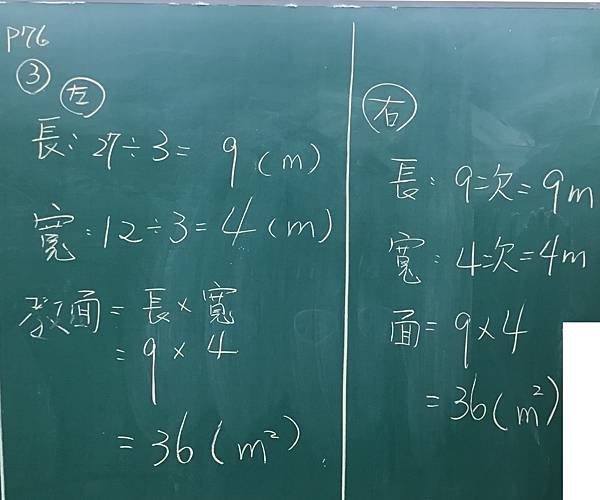 P76
③
左
長：27÷3= 9 (m)
寬：12÷3=4(m)
教面=長×寬
=9×4
=36(m²)
右
長：9次=9m
寬：4次=4m
面=9×4
=36(m²)